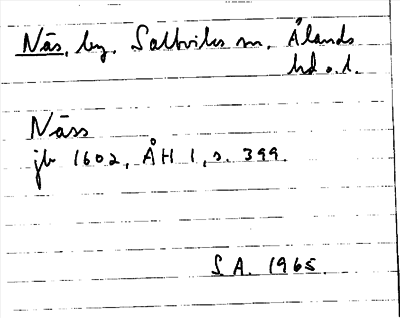 Näs, by, Saltviks sn, Ålands
hd o. l.
Näss
jb 1602, ÅH 1, s. 399.
S A. 1965.